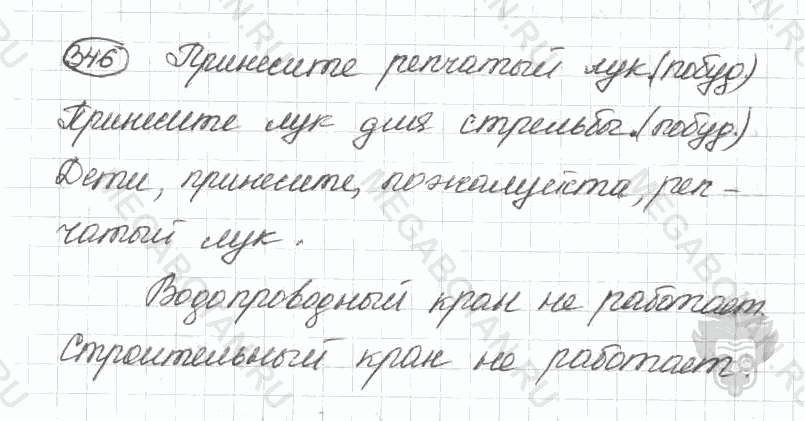 346 Принесите репчатый лук. (побуд.)
Принесите лук для стрельбы. (побуд.)
Дети, принесите, пожалуйста, реп-
чатый лук.
Водопроводный кран не работает.
Строительный кран не работает.
MEGABOTAN.RU